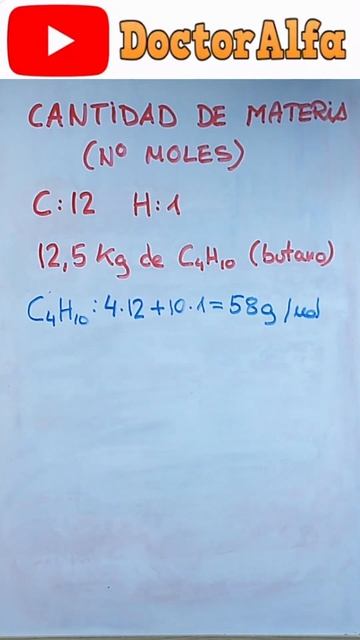 DoctorAlfa
CANTIDAD DE MATERIA
(Nº MOLES)
C:12 H:1
12,5 Kg de C₄H₁₀ (butano)
C₄H₁₀: 4·12+10·1=58g/mol